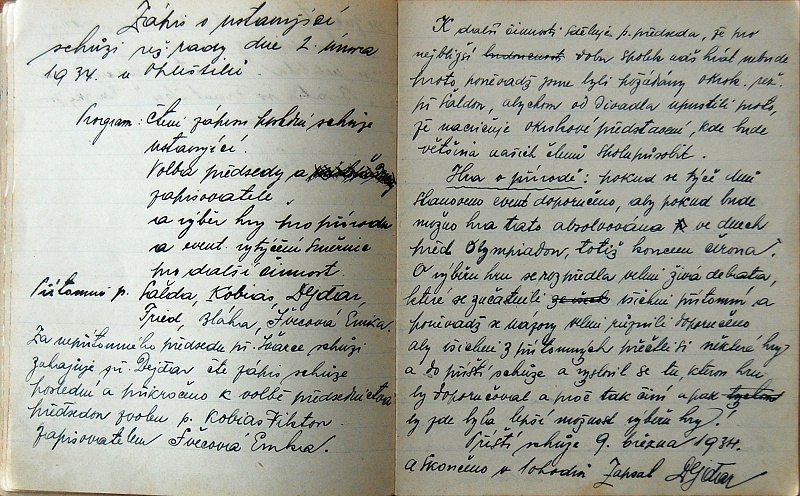 Zápis o ustavující
schůzi rež. rady dne 2. února
1934. u Opluštilů.
Program: Čtení zápisu poslední schůze
ustavující.
Volba předsedy a
zapisovatele
a výběr hry pro přírodu
a event. vytýčení směrnic
pro další činnost.
Přítomni p. Šalda, Kobias, Dejdar,
Bláha, Švecová Emilia.
Za nepřítomného předsedu př. Švarce schůzi
zahajuje př. Dejdar čte zápis schůze
poslední a přikročeno k volbě předsednictva
předsedou zvolen p. Kobias Viktor.
zapisovatelem Švecová Emilia.
K další činnosti sděluje p. předseda, že pro
nejbližší doba spolek náš hrát nebude
proto, poněvadž jsme byli požádány okrsk. rež.
př. Šaldou, abychom od divadla upustili proto,
že nacvičuje okrskové představení, kde bude
většina našich členů spolupůsobit.
Hra v přírodě: pokud se týče dnů
stanoveno event. doporučeno, aby pokud bude
možno hra tato absolvována ve dnech
před Olympiadou, totiž koncem června.
O výběru hru se rozpředla velmi živá debata,
které se zúčastnili všichni přítomni a
poněvadž se názory velmi různili doporučeno
aby všichni z přítomných přečetli si některé hry
a do příští schůze a vyslovil se tu, kterou hru
by doporučoval a proč tak činí a pak
by zde byla lepší možnost výběru hry.
Příští schůze 9. března 1934.
a skončeno v 10 hodin Zapsal Dejdar